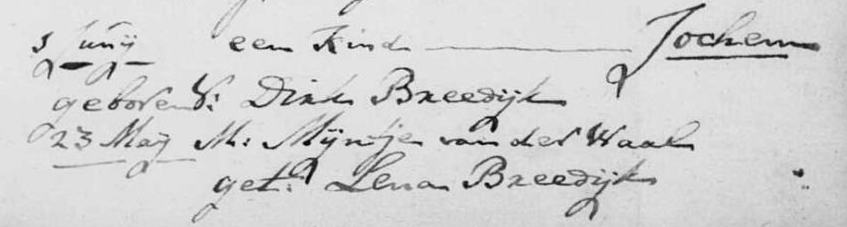 5 Junij een Kind Jochem
geboren V: Dirk Breedijk
23 May M: Mijntje van der Waal
get: Lena Breedijk